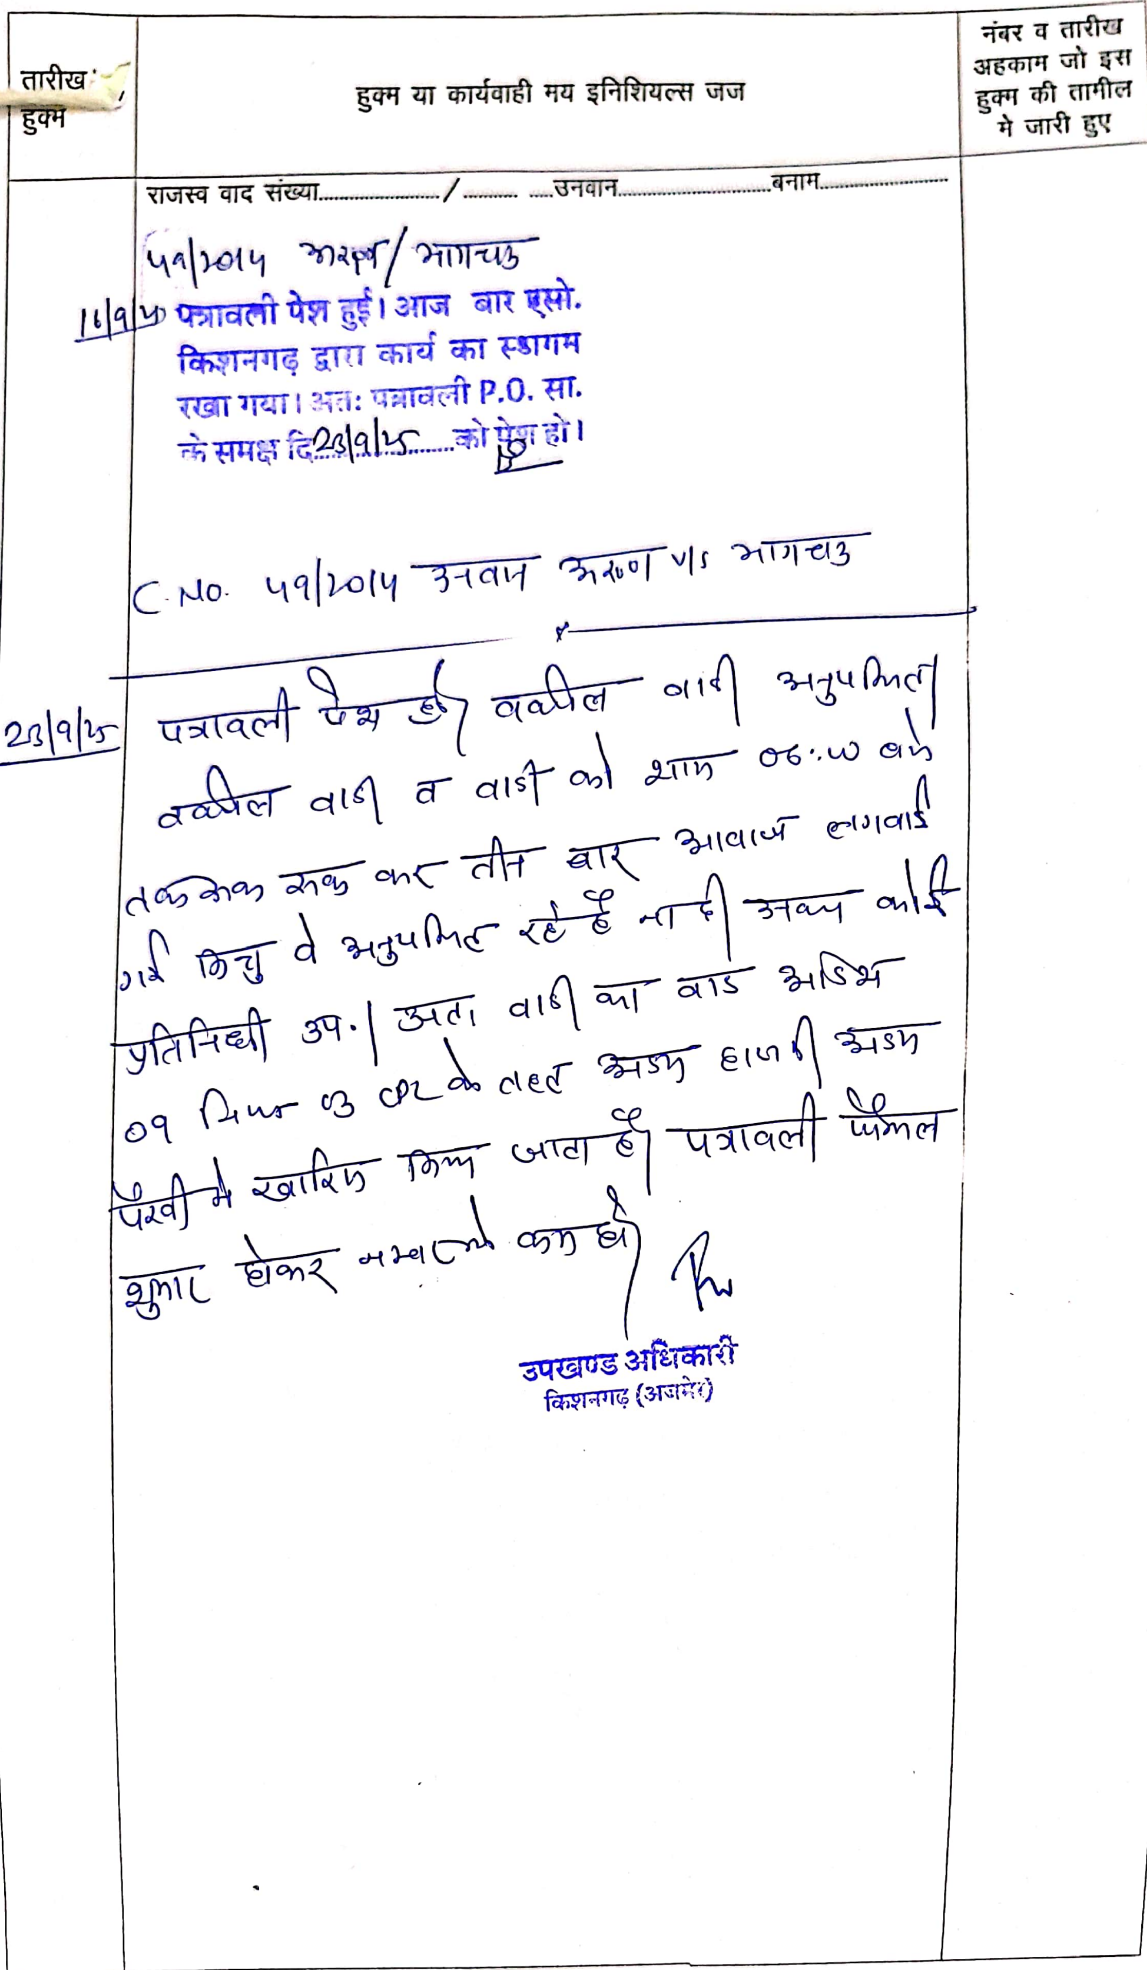 तारीख
हुक्म
हुक्म या कार्यवाही मय इनिशियल्स जज
नंबर व तारीख
अहकाम जो इस
हुक्म की तामील
मे जारी हुए
राजस्व वाद संख्या......................../........... .....उनवान...............................बनाम..........................
59/2015 अरुण / भागचंद
16/9/25 पत्रावली पेश हुई। आज बार एसो.
किशनगढ़ द्वारा कार्य का स्थगन
रखा गया। अत: पत्रावली P.O. सा.
के समक्ष दि 23/9/25 को पेश हो।
C. No. 59/2015 उनवान अरुण v/s भागचंद
23/9/25 पत्रावली पेश हुई। वकील वादी अनुपस्थित।
वकील वादी व वादी को शाम 06:00 बजे
तक रूक रूक कर तीन बार आवाजें लगवाई
गई किन्तु वे अनुपस्थित रहे है ना ही अन्य कोई
प्रतिनिधी उप.। अतः वादी का वाद आदेश
09 नियम 03 CPC के तहत अदम हाजरी अदम
पैरवी मे खारिज किया जाता है। पत्रावली फैसल
शुमार होकर नम्बर से कम हो।
उपखण्ड अधिकारी
किशनगढ़ (अजमेर)